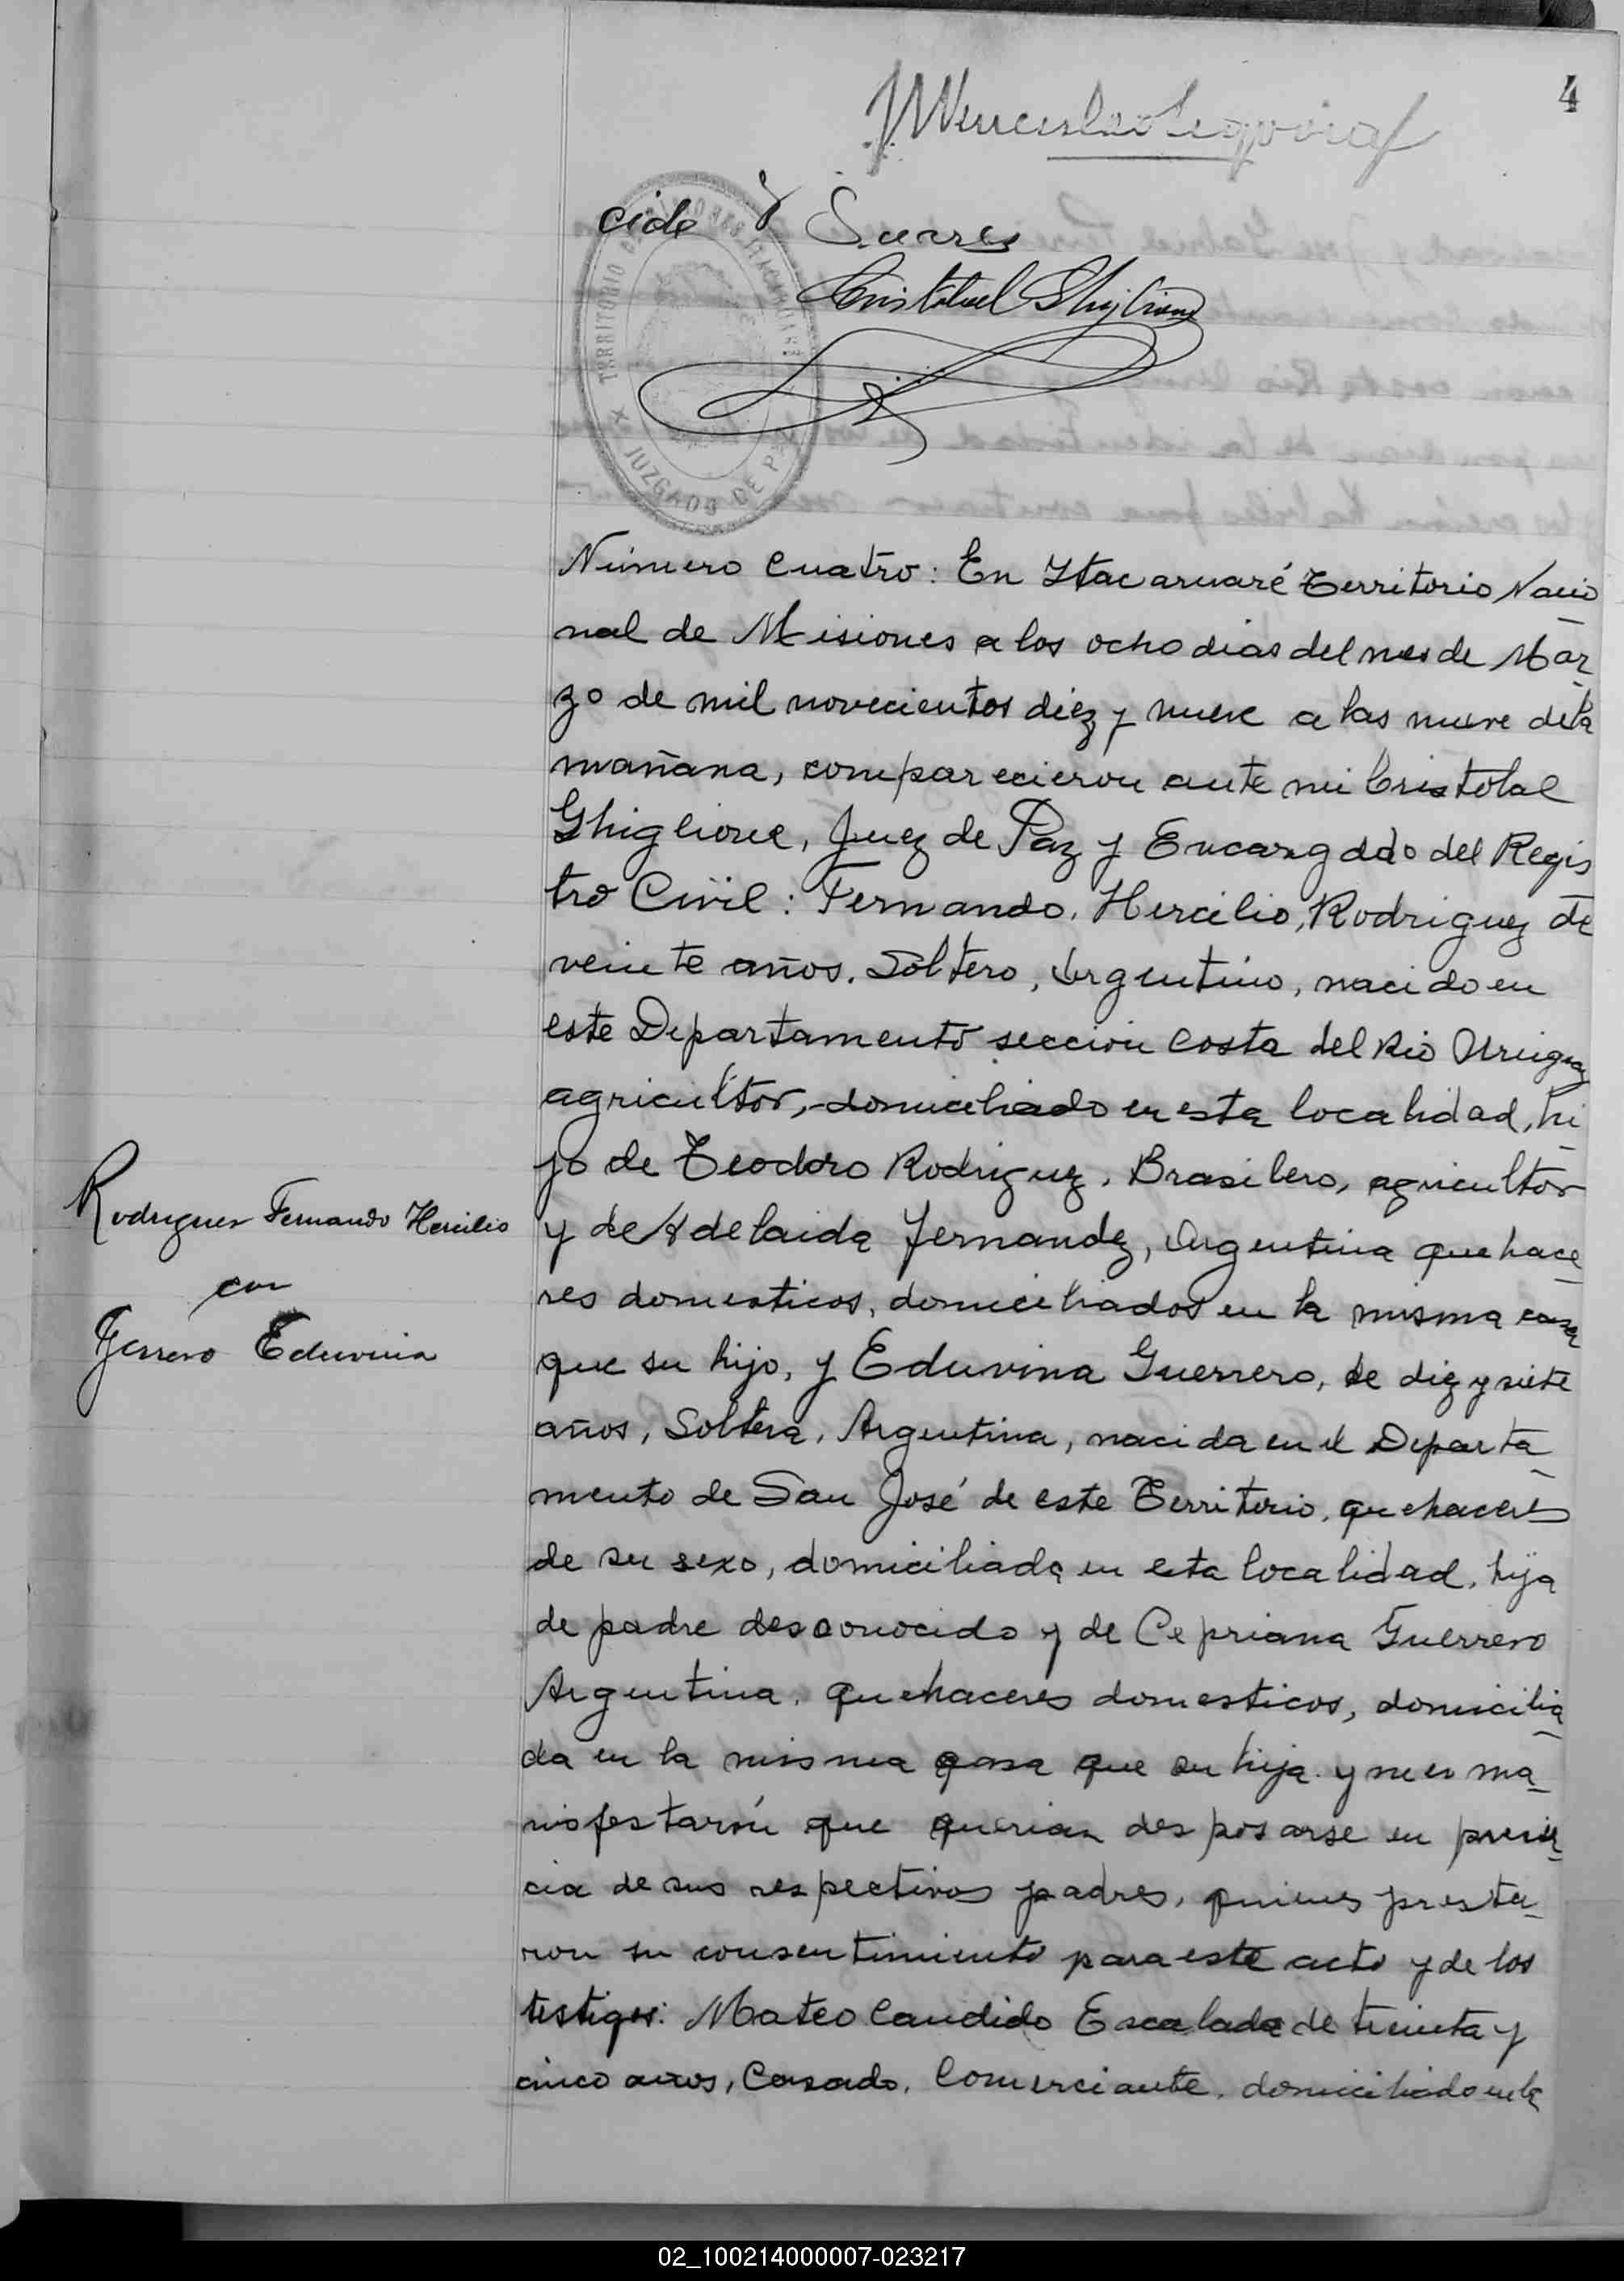 4
Wenceslao Segovia
cido Y Suares
Cristobal Ghiglione
TERRITORIO DE MISIONES ITACARUARÉ
JUZGADO DE PAZ
Número cuatro: En Ytacaruaré Territorio Nacio
nal de Misiones a los ocho dias del mes de Mar
zo de mil novecientos diez y nueve a las nueve dela
mañana, comparecieron ante mi Cristobal
Ghiglione, Juez de Paz y Encargado del Regis
tro Civil: Fernando, Hercilio, Rodriguez de
veinte años. Soltero, Argentino, nacido en
este Departamento seccion Costa del Rio Uruguay
agricultor, domiciliado en esta localidad, hi
jo de Teodoro Rodriguez, Brasilero, agricultor
y de Adelaida Fernandez, Argentina quehace
res domesticos, domiciliados en la misma casa
que su hijo, y Eduvina Guerrero, de diez y siete
años, Soltera, Argentina, nacida en el Departa
mento de San José de este Territorio, quehaceres
de su sexo, domiciliada en esta localidad, hija
de padre desconocido y de Cepriana Guerrero
Argentina, quehaceres domesticos, domicilia
da en la misma casa que su hija y me ma
nisfestarón que querian desposarse en presen
cia de sus respectivos padres, quienes presta
ron su consentimiento para este acto y de los
testigos: Mateo Candido Escalada de treinta y
cinco años, Casado, Comerciante, domiciliado en la
Rodriguez Fernando Hercilio
con
Gerrero Eduvina
02_100214000007-023217